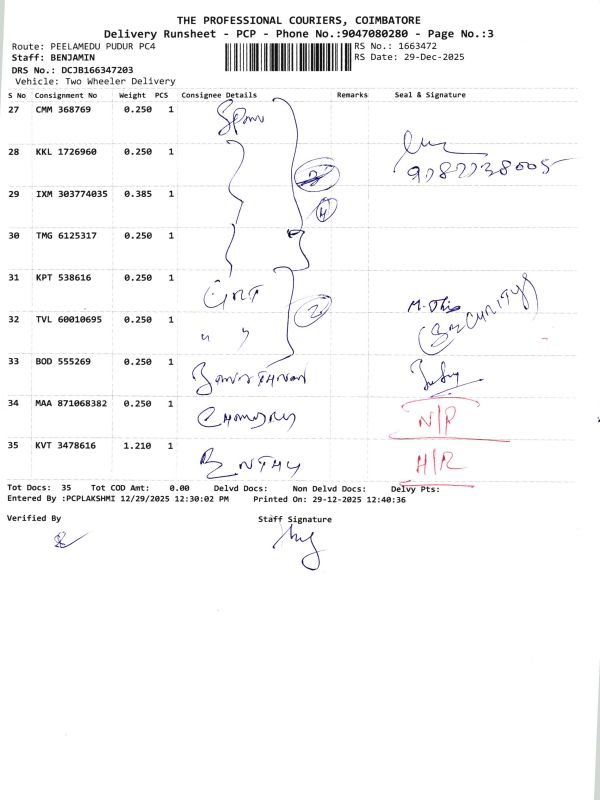 THE PROFESSIONAL COURIERS, COIMBATORE
Delivery Runsheet - PCP - Phone No.:9047080280 - Page No.:3
Route: PEELAMEDU PUDUR PC4 RS No.: 1663472
Staff: BENJAMIN RS Date: 29-Dec-2025
DRS No.: DCJB166347203
Vehicle: Two Wheeler Delivery
S No Consignment No Weight PCS Consignee Details Remarks Seal & Signature
27 CMM 368769 0.250 1
28 KKL 1726960 0.250 1
29 IXM 303774035 0.385 1
4
30 TMG 6125317 0.250 1
31 KPT 538616 0.250 1
32 TVL 60010695 0.250 1 " " 2 (SECURITY)
33 BOD 555269 0.250 1
34 MAA 871068382 0.250 1 N/R
35 KVT 3478616 1.210 1 H/R
Tot Docs: 35 Tot COD Amt: 0.00 Delvd Docs: Non Delvd Docs: Delvy Pts:
Entered By :PCPLAKSHMI 12/29/2025 12:30:02 PM Printed On: 29-12-2025 12:40:36
Verified By Staff Signature